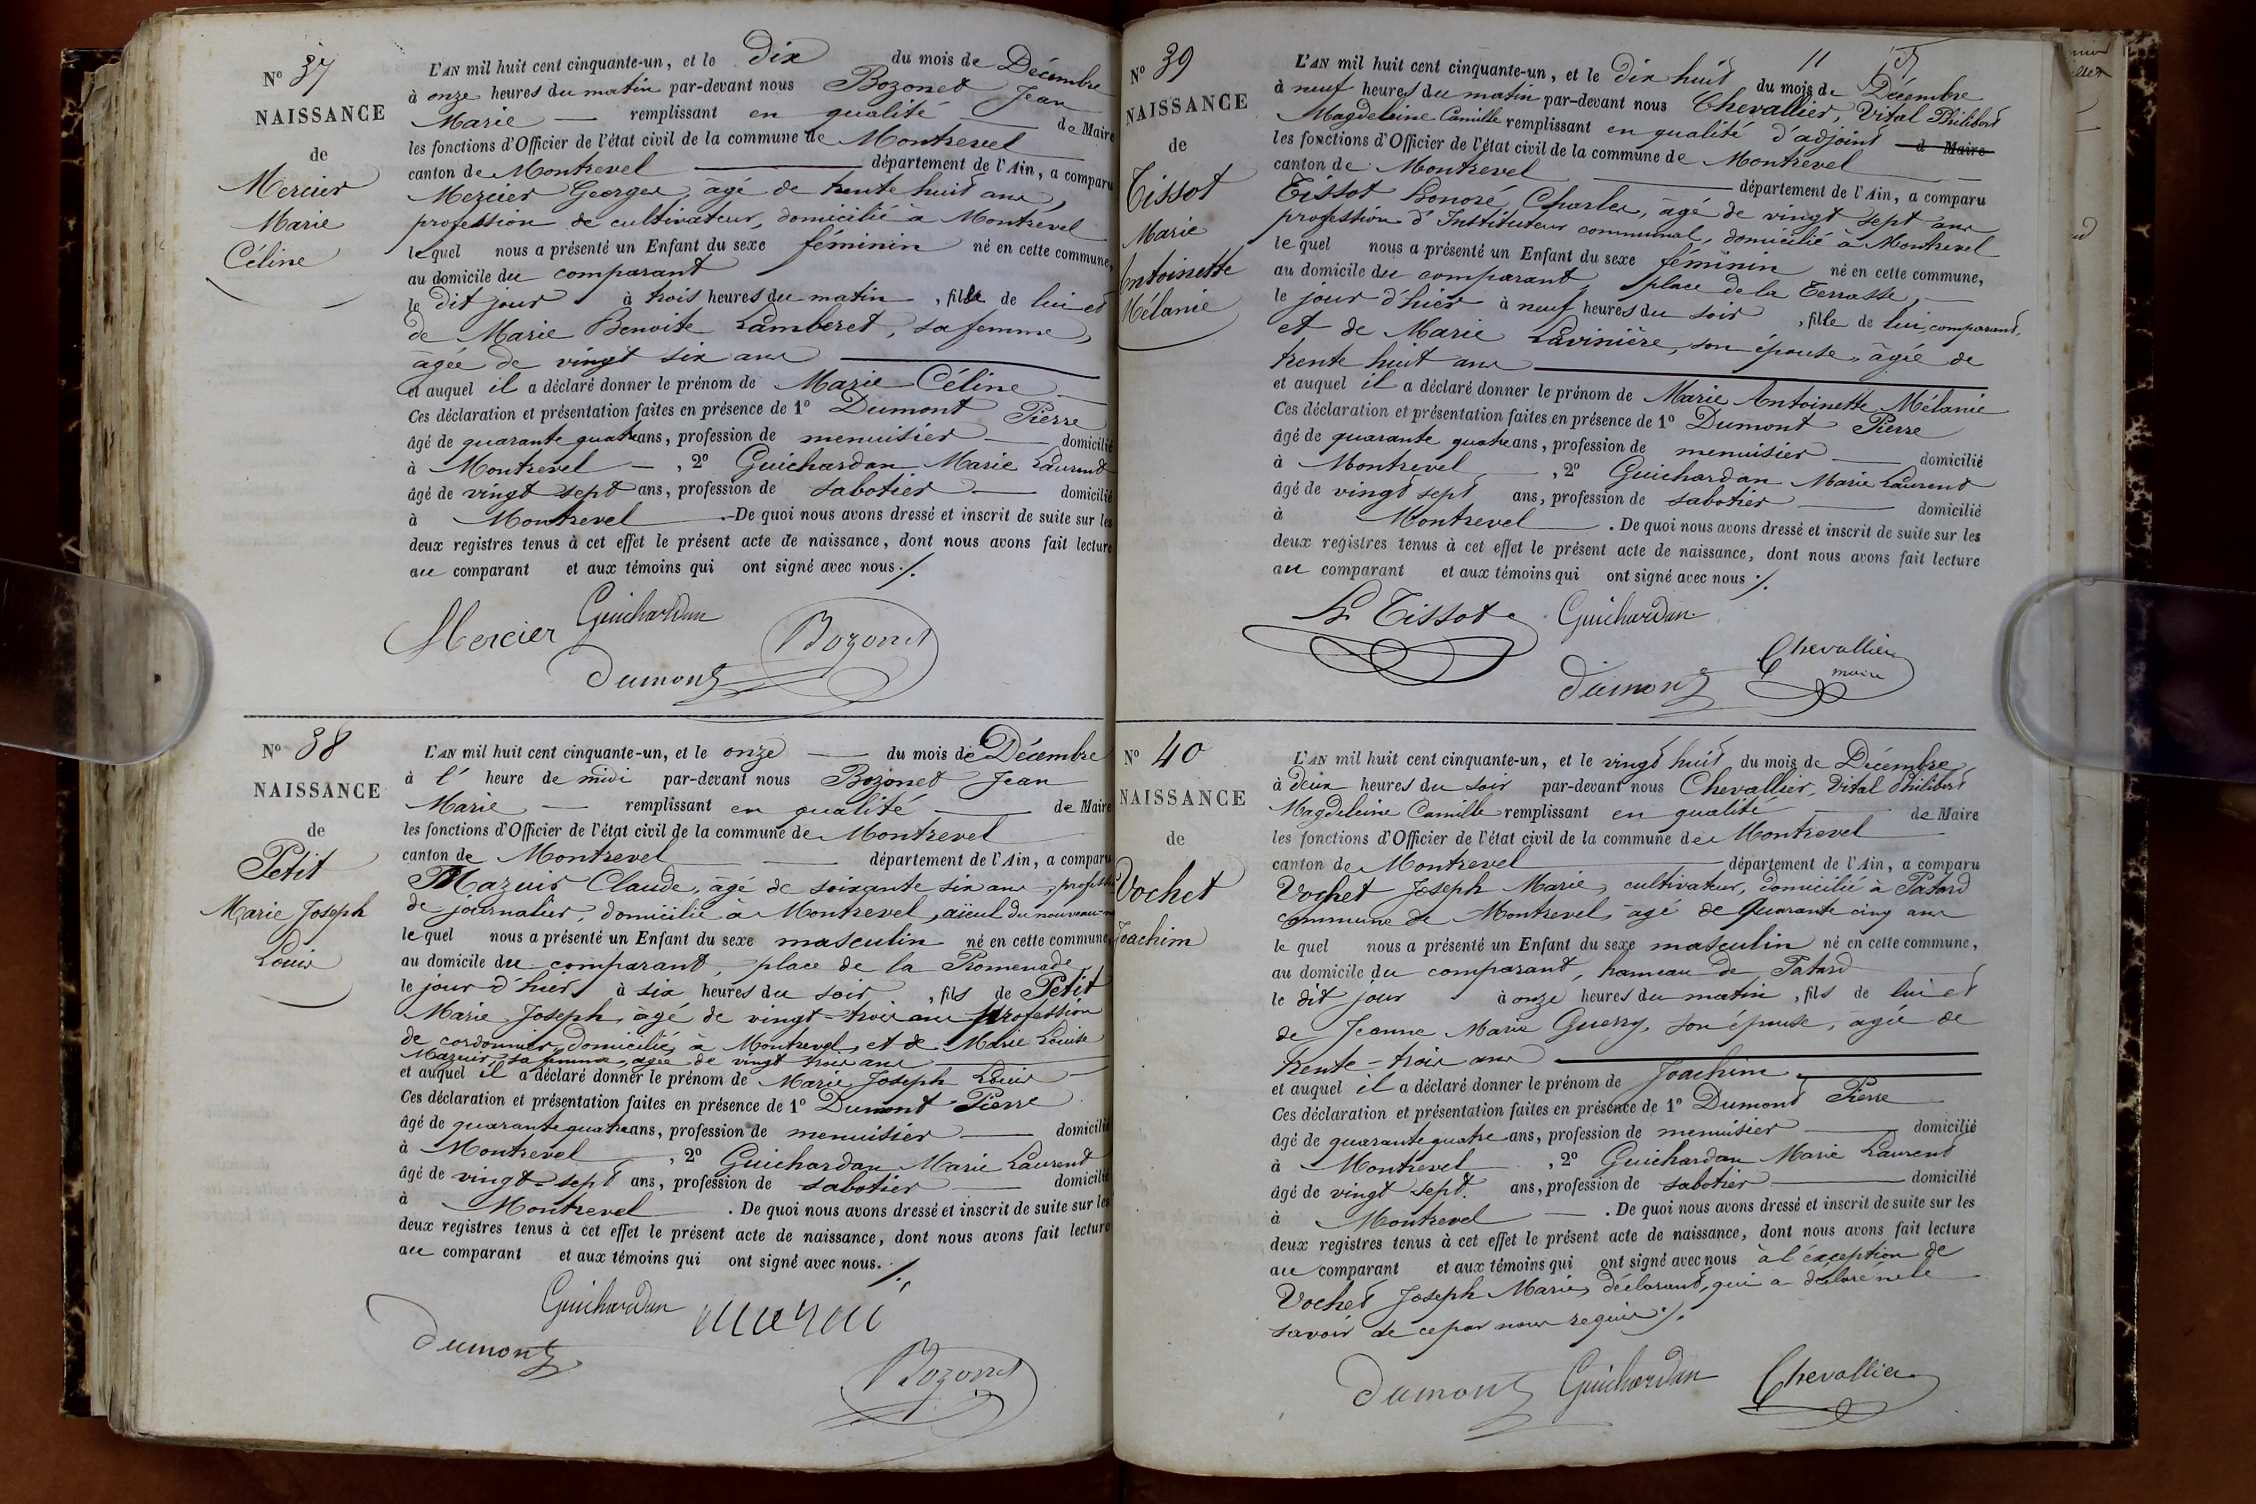 N° 37
NAISSANCE
de
Mercier
Marie
Céline
L'AN mil huit cent cinquante-un, et le Dix du mois de Décembre
à onze heures du matin par-devant nous Bozonet Jean
Marie — remplissant en qualité — de Maire
les fonctions d'Officier de l'état civil de la commune de Montrevel
canton de Montrevel — département de l'Ain, a comparu
Mercier Georges, âgé de trente huit ans,
profession de cultivateur, domicilié à Montrevel
lequel nous a présenté un Enfant du sexe féminin né en cette commune,
au domicile du comparant
le dit jour à trois heures du matin, fille de lui et
de Marie Benoite Lamberet, sa femme,
âgée de vingt six ans —
et auquel il a déclaré donner le prénom de Marie Céline
Ces déclaration et présentation faites en présence de 1° Dumont Pierre
âgé de quarante quatre ans, profession de menuisier — domicilié
à Montrevel — , 2° Guichardan Marie Laurent
âgé de vingt sept ans, profession de sabotier — domicilié
à Montrevel — . De quoi nous avons dressé et inscrit de suite sur les
deux registres tenus à cet effet le présent acte de naissance, dont nous avons fait lecture
au comparant et aux témoins qui ont signé avec nous ./.
Mercier Guichardan Bozonet
Dumont
N° 38
NAISSANCE
de
Petit
Marie Joseph
Louis
L'AN mil huit cent cinquante-un, et le onze — du mois de Décembre
à l' heure de midi par-devant nous Bozonet Jean
Marie — remplissant en qualité — de Maire
les fonctions d'Officier de l'état civil de la commune de Montrevel
canton de Montrevel — département de l'Ain, a comparu
Mazuir Claude, âgé de soixante six ans, profession
de journalier, domicilié à Montrevel, aïeul du nouveau-né
lequel nous a présenté un Enfant du sexe masculin né en cette commune,
au domicile du comparant, place de la Promenade
le jour d'hier à six heures du soir, fils de Petit
Marie Joseph, âgé de vingt-trois ans profession
de cordonnier, domicilié à Montrevel, et de Marie Louise
Mazuir, sa femme, âgée de vingt trois ans —
et auquel il a déclaré donner le prénom de Marie Joseph Louis —
Ces déclaration et présentation faites en présence de 1° Dumont Pierre
âgé de quarante quatre ans, profession de menuisier — domicilié
à Montrevel , 2° Guichardan Marie Laurent
âgé de vingt-sept ans, profession de sabotier — domicilié
à Montrevel — . De quoi nous avons dressé et inscrit de suite sur les
deux registres tenus à cet effet le présent acte de naissance, dont nous avons fait lecture
au comparant et aux témoins qui ont signé avec nous. ./.
Guichardan
Dumont Bozonet
N° 39
NAISSANCE
de
Tissot
Marie
Antoinette
Mélanie
11
L'AN mil huit cent cinquante-un, et le dix huit du mois de Décembre
à neuf heures du matin par-devant nous Chevallier, Vital Philibert
Magdeleine Camille remplissant en qualité d'adjoint — d Maire
les fonctions d'Officier de l'état civil de la commune de Montrevel
canton de Montrevel — département de l'Ain, a comparu
Tissot Honoré Charles, âgé de vingt sept ans
profession d'Instituteur communal, domicilié à Montrevel
lequel nous a présenté un Enfant du sexe féminin né en cette commune,
au domicile du comparant, place de la Terrasse, —
le jour d'hier à neuf heures du soir, fille de lui, comparant,
et de Marie Lavinière, son épouse, âgée de
trente huit ans —
et auquel il a déclaré donner le prénom de Marie Antoinette Mélanie
Ces déclaration et présentation faites en présence de 1° Dumont Pierre
âgé de quarante quatre ans, profession de menuisier — domicilié
à Montrevel — , 2° Guichardan Marie Laurent
âgé de vingt sept ans, profession de sabotier — domicilié
à Montrevel — . De quoi nous avons dressé et inscrit de suite sur les
deux registres tenus à cet effet le présent acte de naissance, dont nous avons fait lecture
au comparant et aux témoins qui ont signé avec nous ./.
Tissot Guichardan
Chevallier
maire
Dumont
N° 40
NAISSANCE
de
Vochet
Joachim
L'AN mil huit cent cinquante-un, et le vingt huit du mois de Décembre
à deux heures du soir par-devant nous Chevallier, Vital Philibert
Magdeleine Camille remplissant en qualité — de Maire
les fonctions d'Officier de l'état civil de la commune de Montrevel —
canton de Montrevel — département de l'Ain, a comparu
Vochet Joseph Marie, cultivateur, domicilié à Patard
commune de Montrevel, âgé de quarante cinq ans
le quel nous a présenté un Enfant du sexe masculin né en cette commune,
au domicile du comparant, hameau de Patard
le dit jour à onze heures du matin, fils de lui et
de Jeanne Marie Guerry, son épouse, âgée de
trente-trois ans —
et auquel il a déclaré donner le prénom de Joachim. —
Ces déclaration et présentation faites en présence de 1° Dumont Pierre
âgé de quarante quatre ans, profession de menuisier — domicilié
à Montrevel — , 2° Guichardan Marie Laurent
âgé de vingt sept. ans, profession de sabotier — domicilié
à Montrevel — . De quoi nous avons dressé et inscrit de suite sur les
deux registres tenus à cet effet le présent acte de naissance, dont nous avons fait lecture
au comparant et aux témoins qui ont signé avec nous à l'exception de
Vochet Joseph Marie, déclarant, qui a déclaré ne le
savoir de ce par nous requis ./.
Dumont Guichardan Chevallier